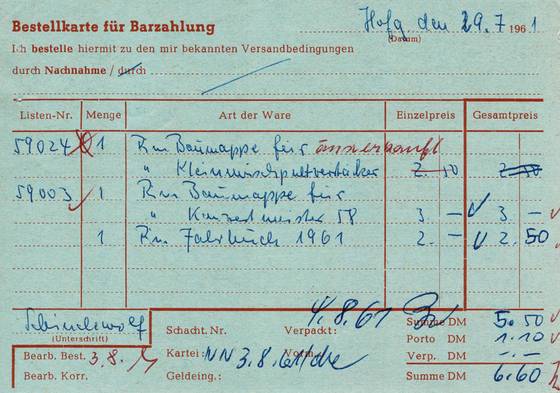 Bestellkarte für Barzahlung
Hofg, den 29. 7. 1961
(Datum)
Ich bestelle hiermit zu den mir bekannten Versandbedingungen
durch Nachnahme / durch
Listen-Nr. Menge Art der Ware Einzelpreis Gesamtpreis
59024 1 Rm Baumappe für ausverkauft
" Kleinmischpultverstärker 2. 50 2. 50
59003 1 Rm Baumappe für
" Konzertmeister 58 3. — 3. —
1 Rm Jahrbuch 1961 2. — 2. 50
4.8.61
(Unterschrift)
Schacht. Nr. Verpackt: Summe DM 5.50
Bearb. Best. 3.8. Kartei: NN 3.8.61 Vorm. Porto DM 1.10
Verp. DM -.-
Bearb. Korr. Geldeing.: Summe DM 6.60